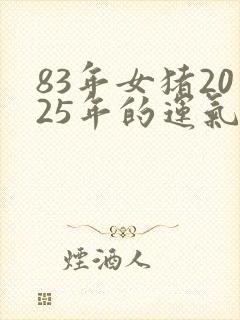 83年女猪20
25年的運氣
煙酒人